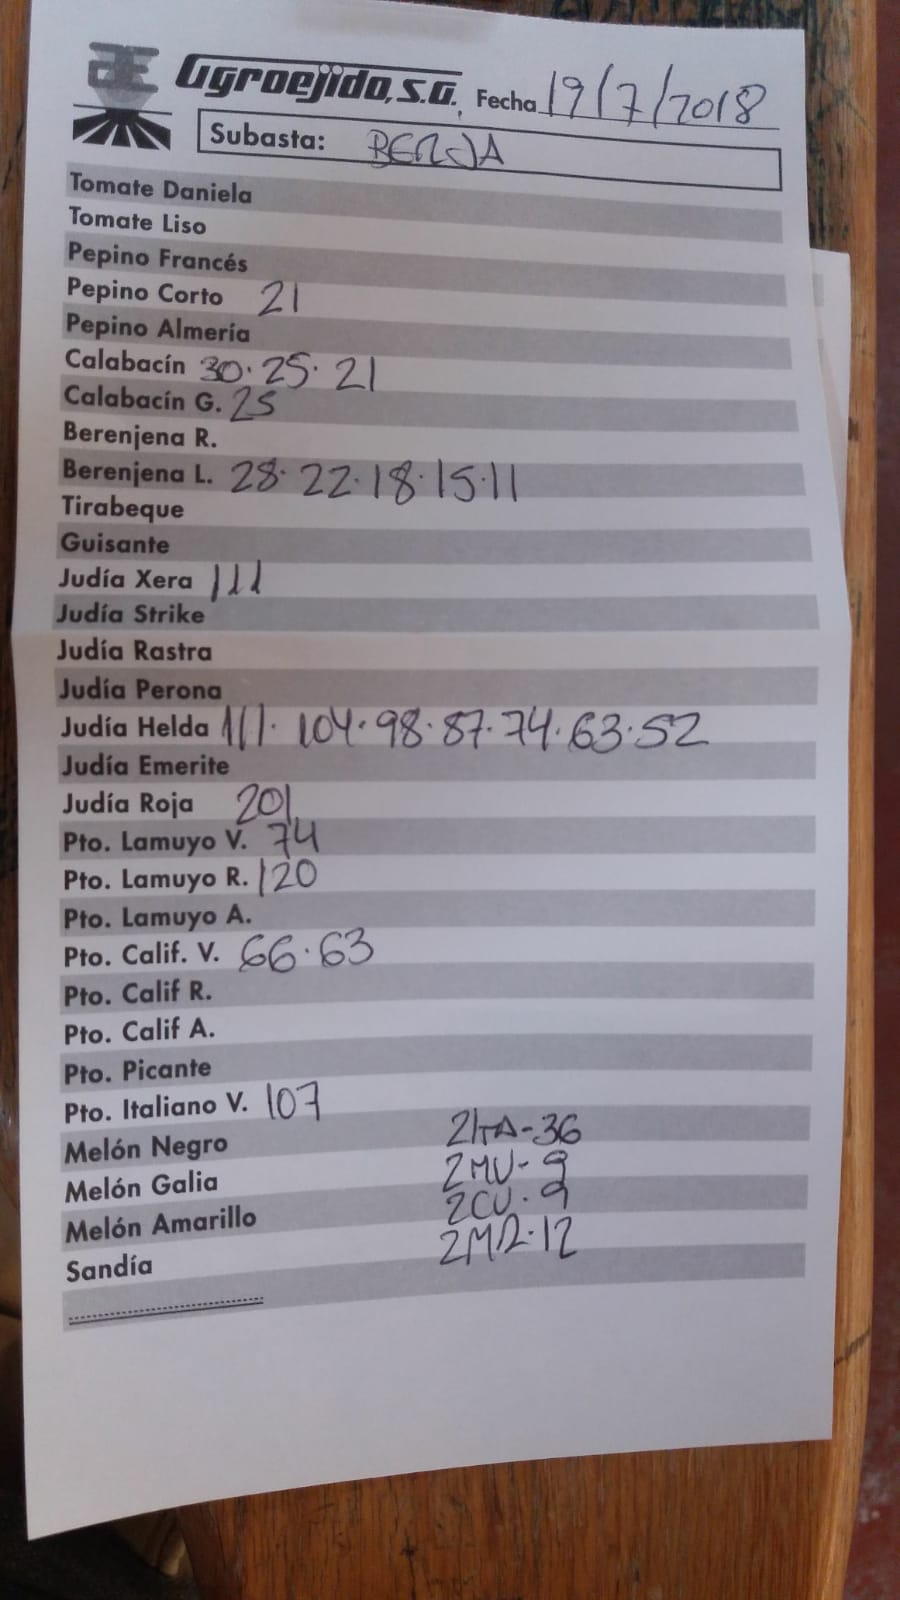 Agroejido, S.A. Fecha 19/7/2018
Subasta: BERJA
Tomate Daniela
Tomate Liso
Pepino Francés
Pepino Corto 21
Pepino Almería
Calabacín 30·25·21
Calabacín G. 25
Berenjena R.
Berenjena L. 28·22·18·15·11
Tirabeque
Guisante
Judía Xera 111
Judía Strike
Judía Rastra
Judía Perona
Judía Helda 111·104·98·87·74·63·52
Judía Emerite
Judía Roja 201
Pto. Lamuyo V. 74
Pto. Lamuyo R. 120
Pto. Lamuyo A.
Pto. Calif. V. 66·63
Pto. Calif R.
Pto. Calif A.
Pto. Picante
Pto. Italiano V. 107
Melón Negro 2ITA-36
Melón Galia 2MU-9
Melón Amarillo 2CU·9
Sandía 2MR·12